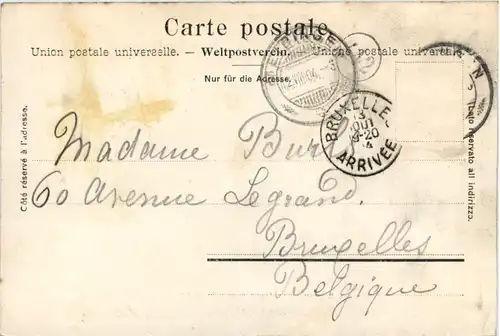 Carte postale.
Union postale universelle. — Weltpostverein. — Unione postale universale
Nur für die Adresse.
Côté réservé à l'adresse.
Lato riservato all indirizzo.
MEIRINGEN
BRUXELLES
13
AOUT
20
4
ARRIVÉE
Madame
60 Avenue Legrand.
Bruxelles
Belgique